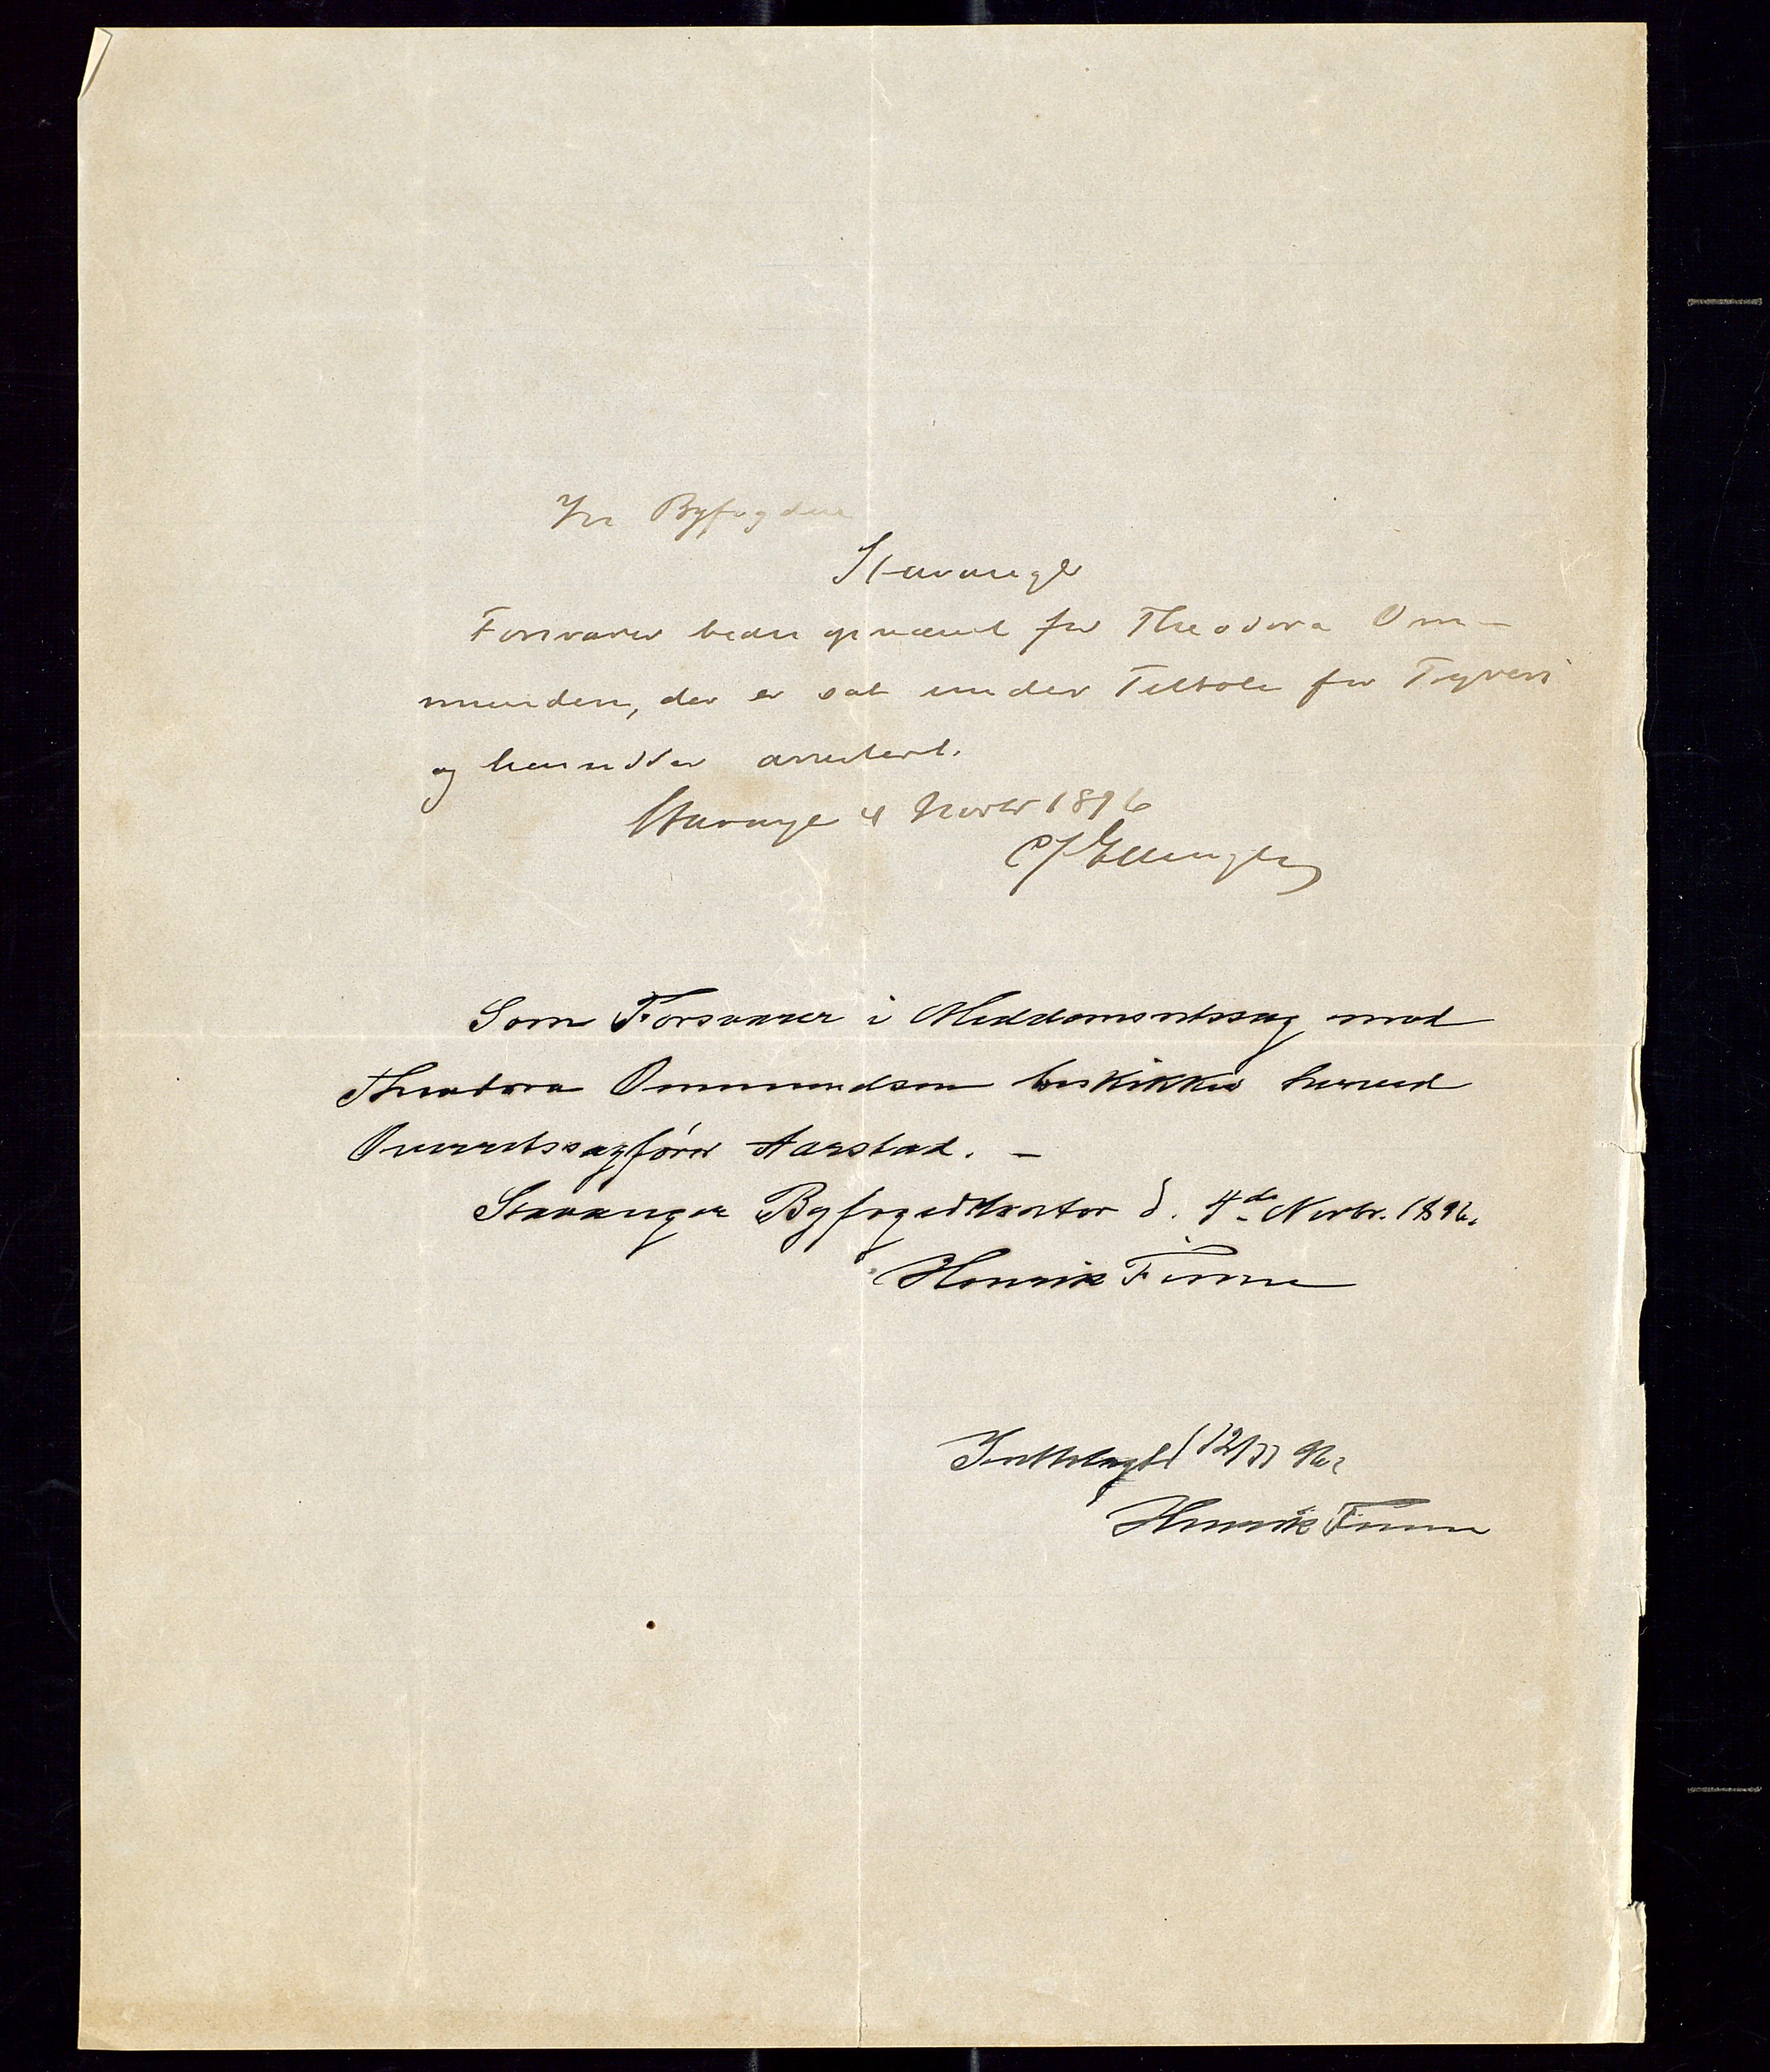 Hr Byfogden
Stavanger
Forsvarer bedes opnævnt for Theodora Om-
mundsen, der er sat under Tiltale for Tyveri
og herunder arresteret.
Stavanger 4 Novbr 1896
Som Forsvarer i Meddomsretssag mod
Theodora Ommundsen beskikkes herved
Overretssagfører Aarstad. –
Stavanger Byfogedkontor d. 4de Novbr. 1896.
Henrik Finne
Fremlagt 12/11 96.
Henrik Finne